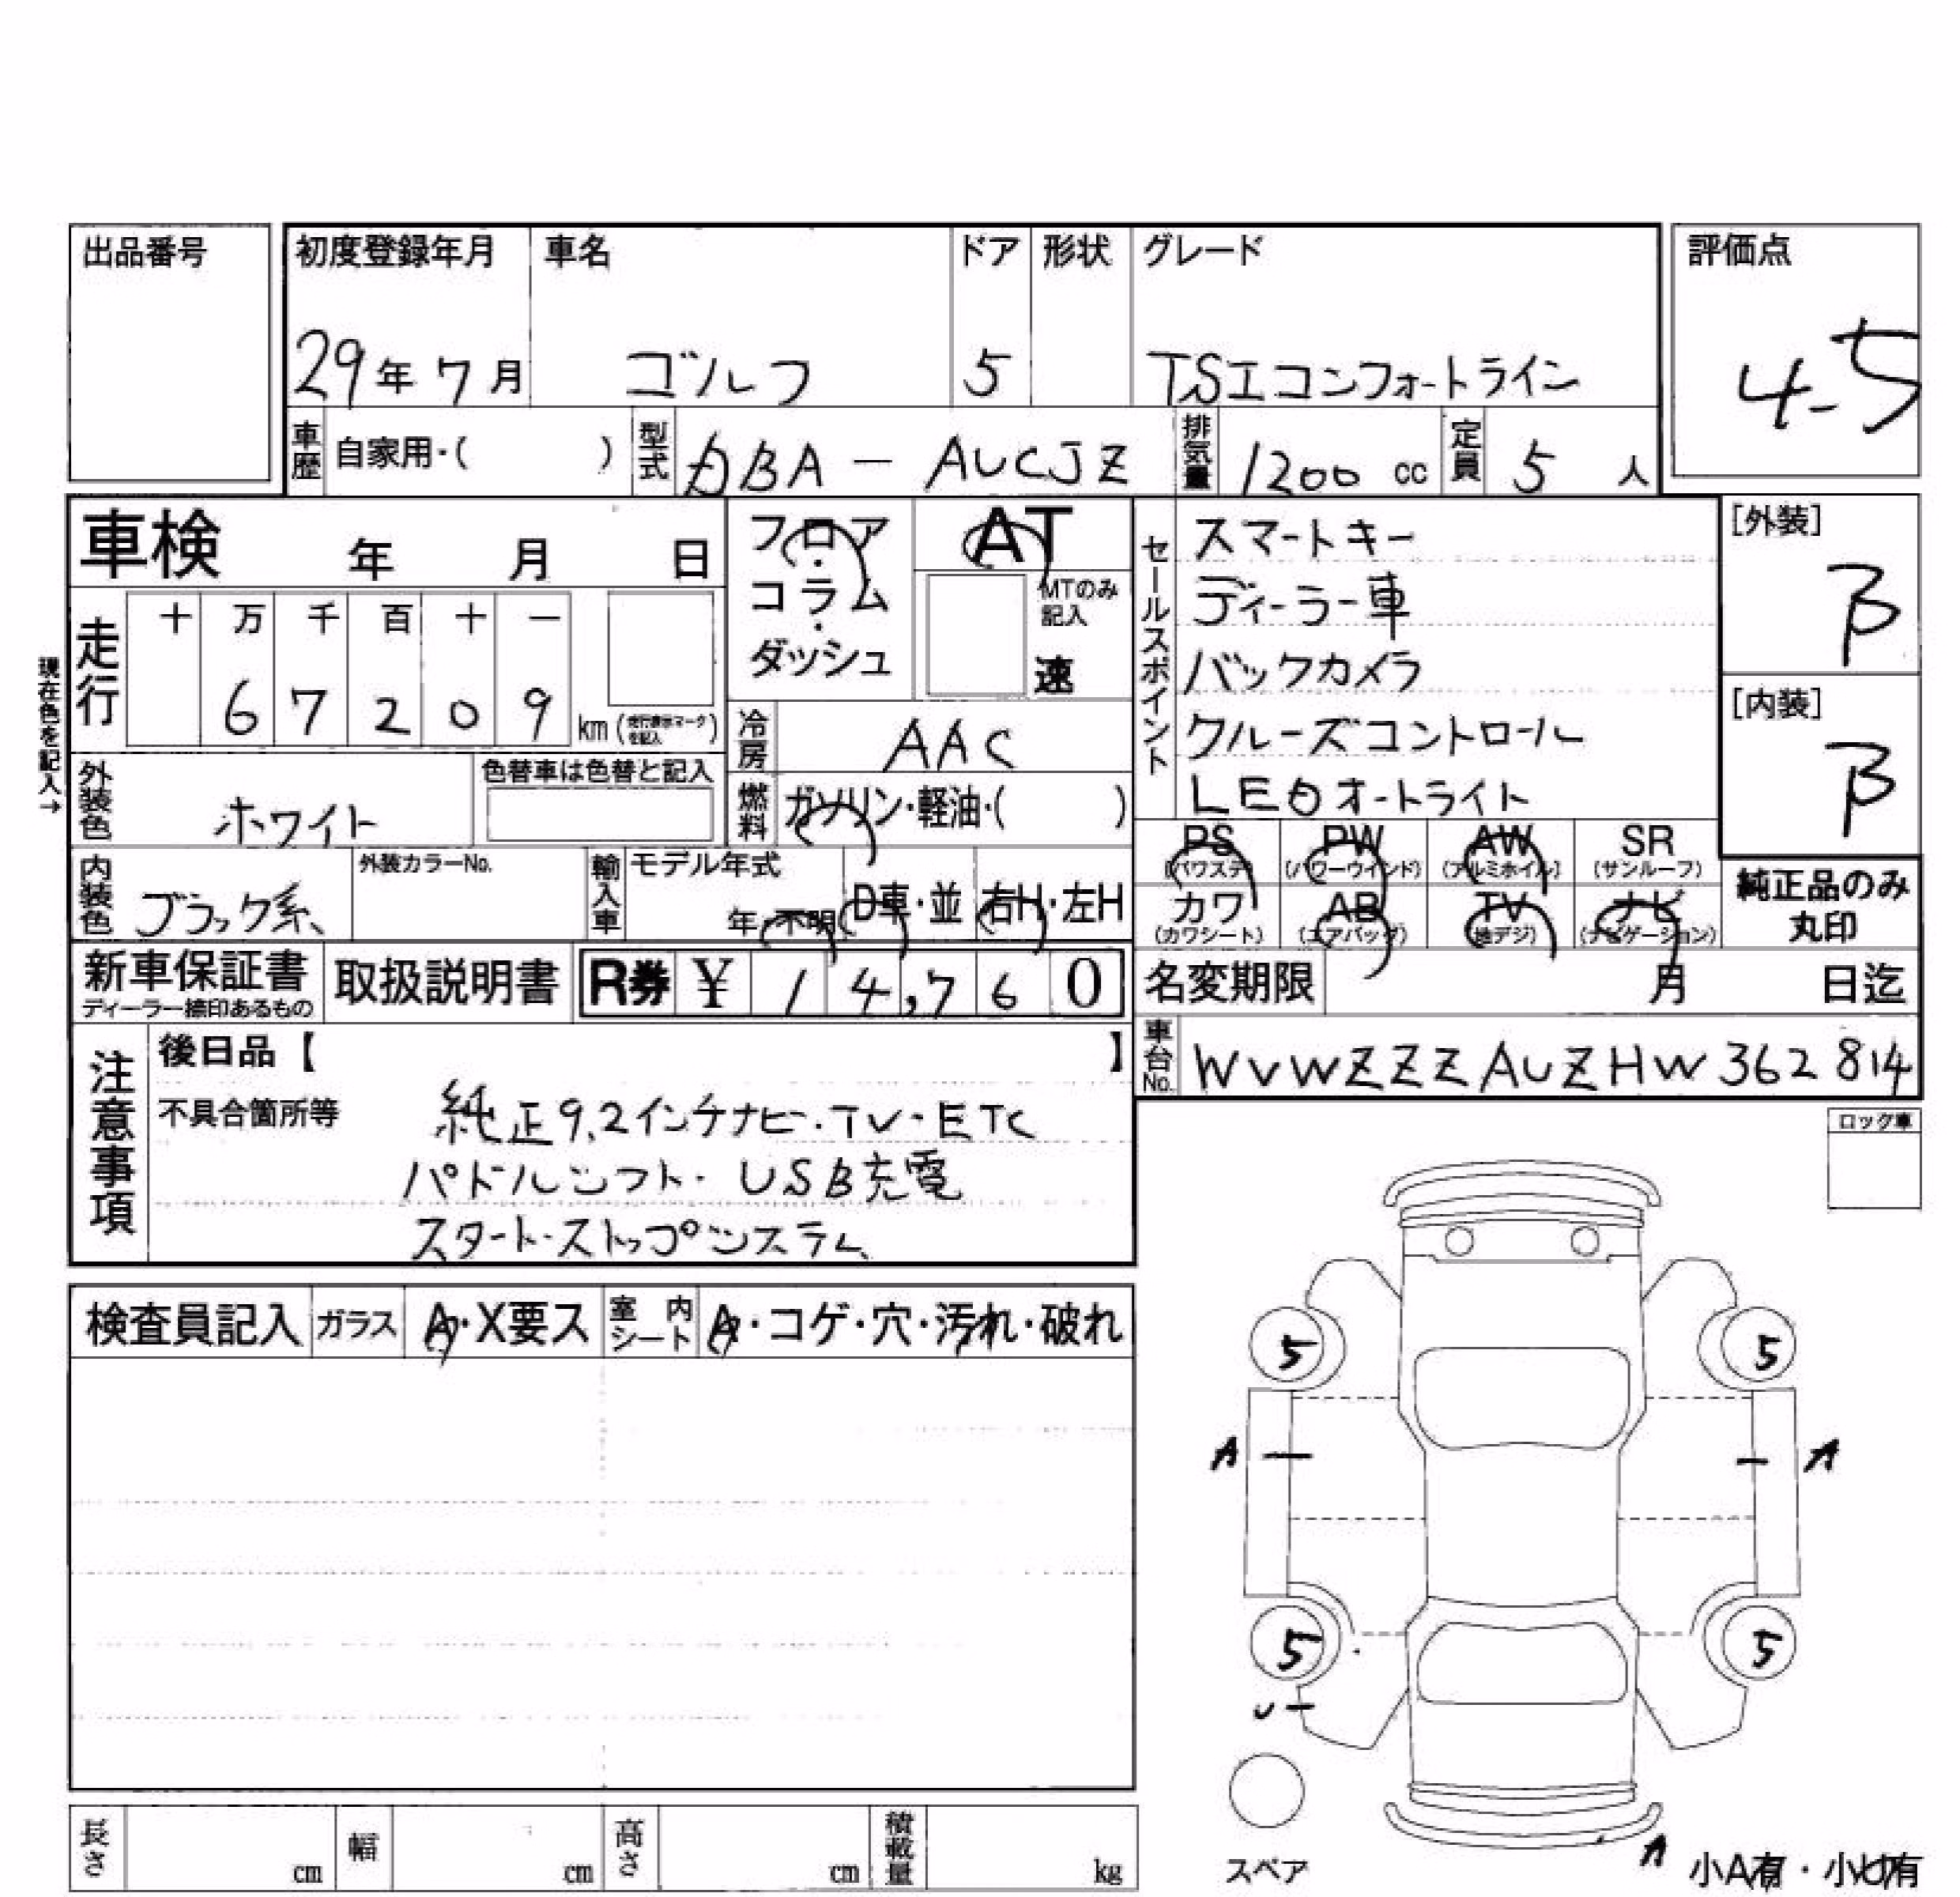 出品番号
初度登録年月 車名 ドア 形状 グレード
評価点
29年7月 ゴルフ 5 TSIコンフォートライン
4.5
車歴 自家用・( ) 型式 DBA-AUCJZ 排気量 1200 cc 定員 5 人
車検 年 月 日
フロア・コラム・ダッシュ
AT
MTのみ記入
速
セールスポイント
スマートキー
ディーラー車
バックカメラ
クルーズコントロール
LEDオートライト
[外装]
B
[内装]
B
現在色を記入→
走行 十 万 千 百 十 一
6 7 2 0 9 km (走行表示マークを記入)
冷房 AAC
外装色 ホワイト 色替車は色替と記入
燃料 ガソリン・軽油・( )
PS (パワステ) PW (パワーウインド) AW (アルミホイル) SR (サンルーフ)
カワ (カワシート) AB (エアバッグ) TV (地デジ) ナビ (ナビゲーション)
純正品のみ
丸印
内装色 ブラック系 外装カラーNo. 輸入車 モデル年式 年・不明 D車・並 右H・左H
新車保証書 ディーラー捺印あるもの 取扱説明書 R券 ¥ 14,760
名変期限 月 日迄
車台No. WVWZZZAUZHW362814
注意事項
後日品【 】
不具合箇所等 純正9.2インチナビ・TV・ETC
パドルシフト・USB充電
スタート・ストップシステム
ロック車
検査員記入 ガラス A・X要ス 室内シート A・コゲ・穴・汚れ・破れ
5 5
A A
5 5
U
スペア
A
小A有・小U有
長さ cm 幅 cm 高さ cm 積載量 kg